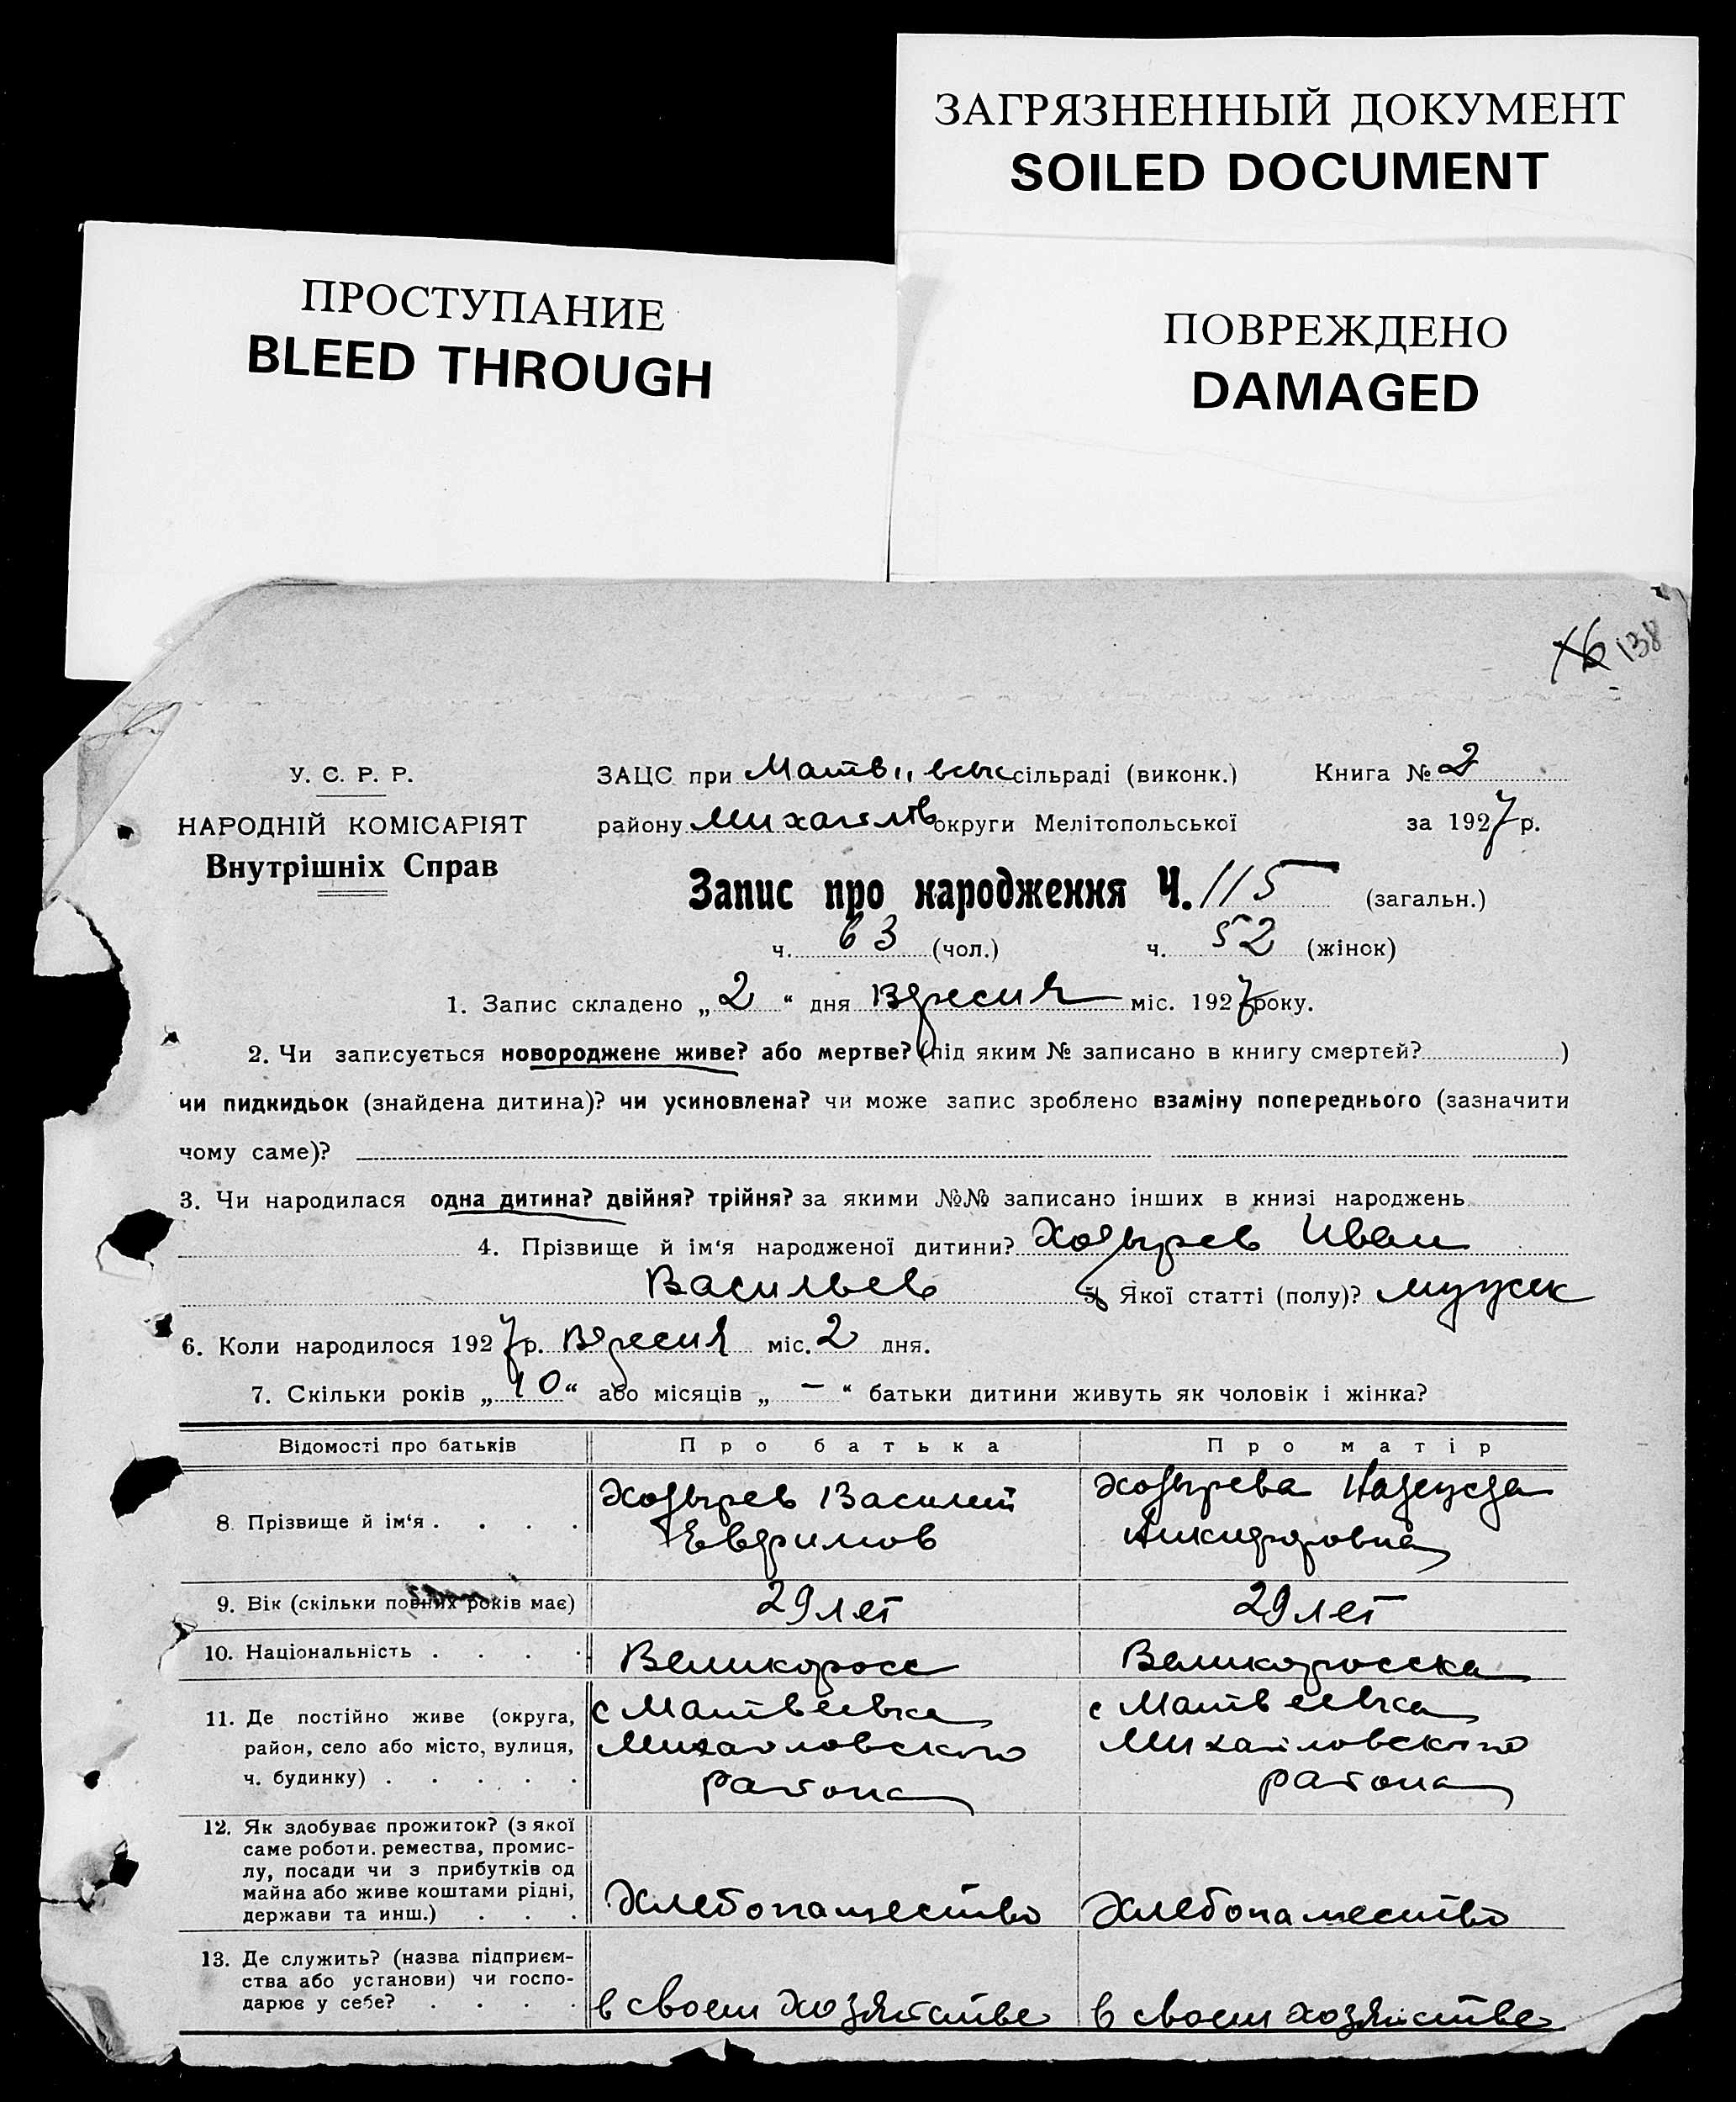 ЗАГРЯЗНЕННЫЙ ДОКУМЕНТ
SOILED DOCUMENT
ПРОСТУПАНИЕ
BLEED THROUGH
ПОВРЕЖДЕНО
DAMAGED
138
У. С. Р. Р.
НАРОДНІЙ КОМІСАРІЯТ
Внутрішніх Справ
ЗАЦС при Матвіївськ сільраді (виконк.) Книга № 2
району Михайлів округи Мелітопольської за 1927 р.
Запис про народження Ч. 115 (загальн.)
ч. 63 (чол.) ч. 52 (жінок)
1. Запис складено „ 2 “ дня Вересня міс. 1927 року.
2. Чи записується новороджене живе? або мертве? (під яким № записано в книгу смертей? )
чи пидкидьок (знайдена дитина)? чи усиновлена? чи може запис зроблено взаміну попереднього (зазначити
чому саме)?
3. Чи народилася одна дитина? двійня? трійня? за якими №№ записано інших в книзі народжень
4. Прізвище й ім‘я народженої дитини? Ходырев Иван
Васильев 5. Якої статті (полу)? мужск
6. Коли народилося 1927 р. Вересня міс. 2 дня.
7. Скільки років „ 10 “ або місяців „ — “ батьки дитини живуть як чоловік і жінка?
Відомості про батьків Про батька Про матір
8. Прізвище й ім‘я . . . .
Ходырев Василий
Евфимов
Ходырева Надежда
Никифоровна
9. Вік (скільки повних років має) 29 лет 29 лет
10. Національність . . . . Великоросс Великоросска
11. Де постійно живе (округа,
район, село або місто, вулиця,
ч. будинку) . . . . .
с Матвеевка
Михайловского
района
с Матвеевка
Михайловского
района
12. Як здобуває прожиток? (з якої
саме роботи, ремества, промис-
лу, посади чи з прибутків од
майна або живе коштами рідні,
держави та инш.) . . .
Хлебопашество Хлебопашество
13. Де служить? (назва підприєм-
ства або установи) чи госпо-
дарює у себе? . . . .
в своем хозяйстве в своем хозяйстве